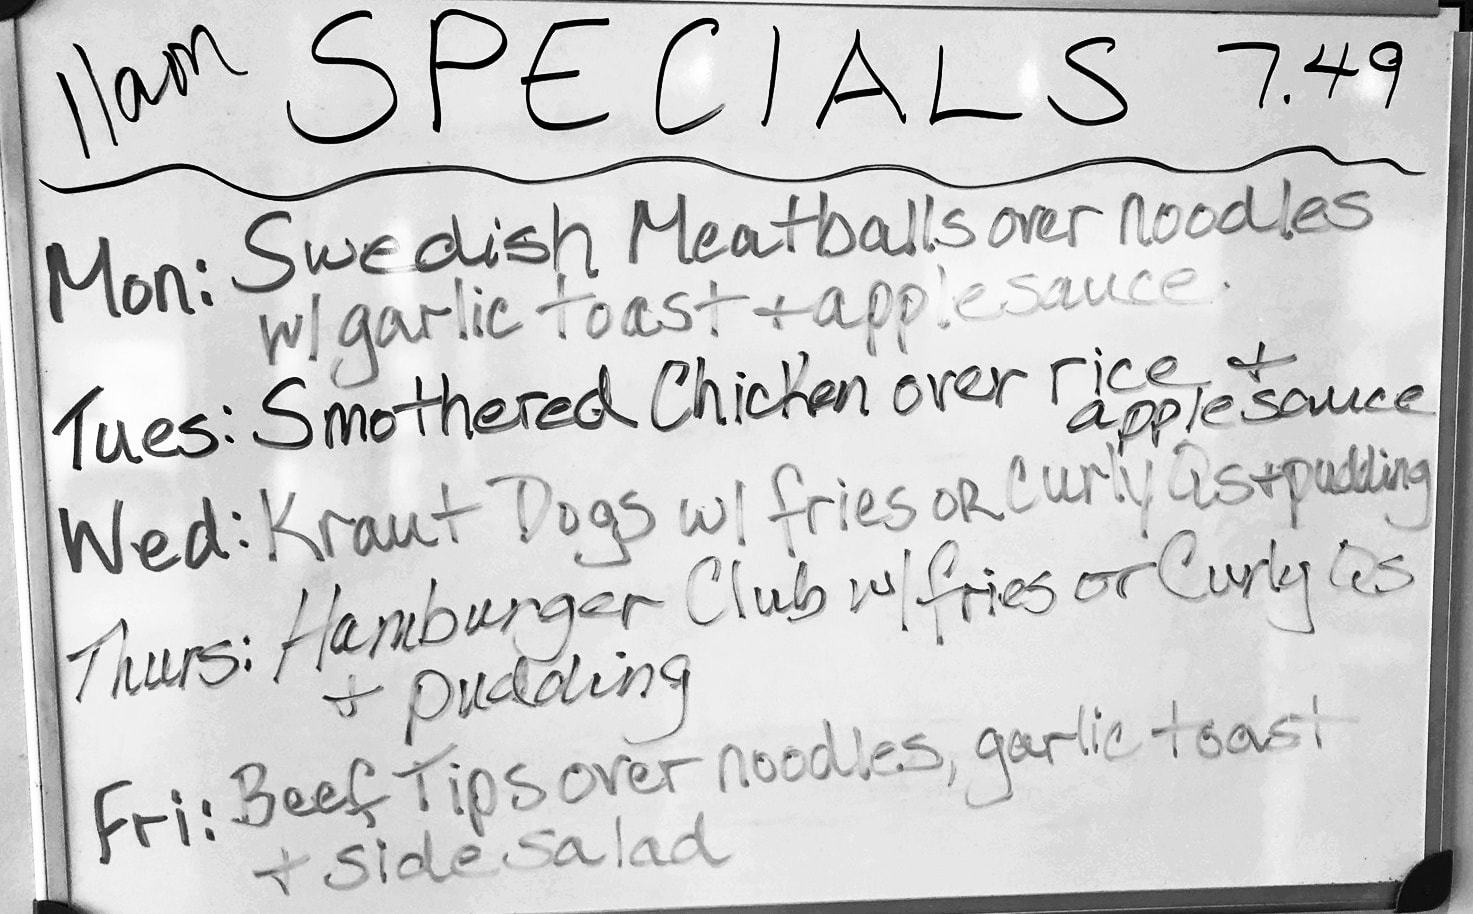 11am SPECIALS 7.49
Mon: Swedish Meatballs over noodles
w/ garlic toast + applesauce.
Tues: Smothered Chicken over rice +
applesauce
Wed: Kraut Dogs w/ fries OR Curly Qs + pudding
Thurs: Hamburger Club w/ fries or Curly Qs
+ pudding
Fri: Beef Tips over noodles, garlic toast
+ side salad